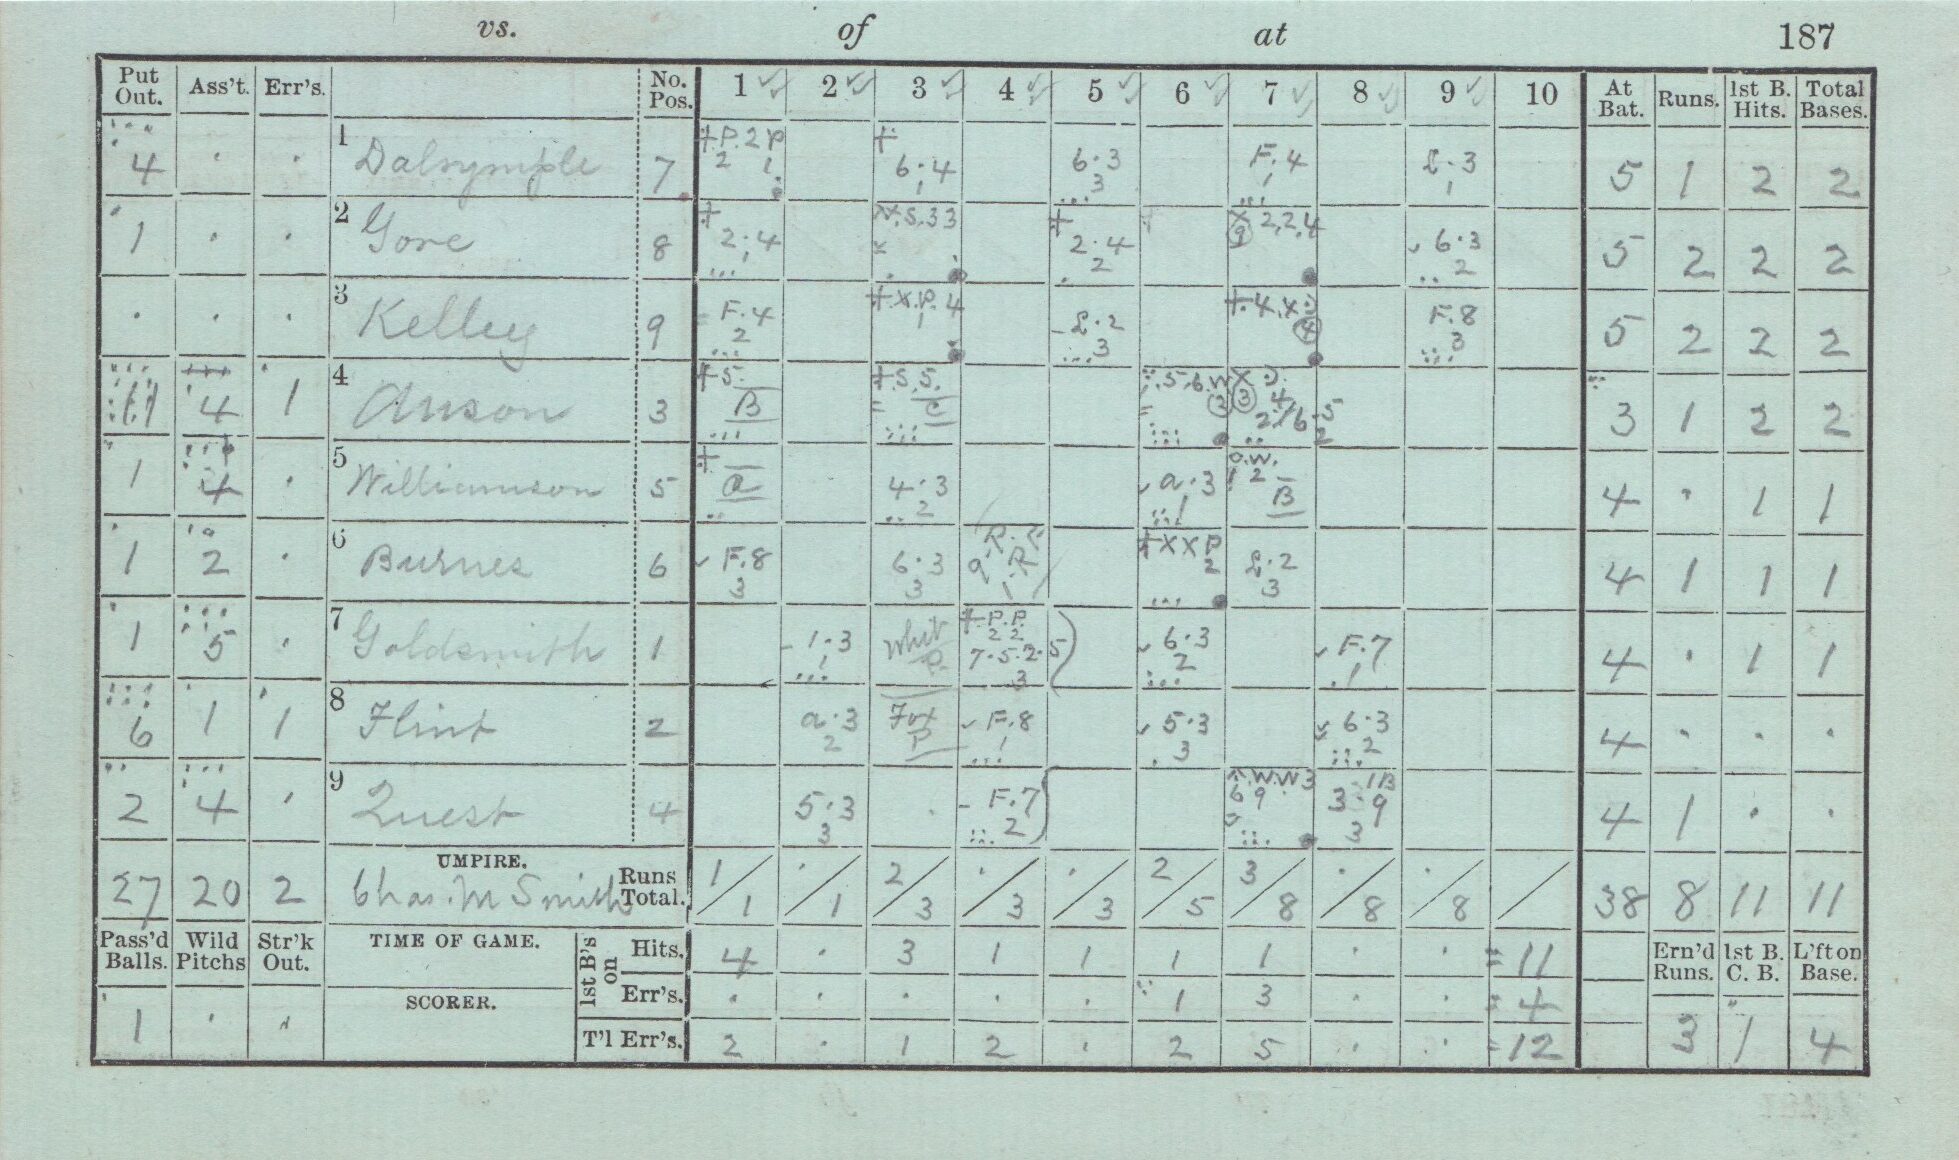 vs. of at 187
Put Out. Ass't. Err's. No. Pos. 1 2 3 4 5 6 7 8 9 10 At Bat. Runs. 1st B. Hits. Total Bases.
4 · · 1 Dalrymple 7 +P.2P 2 1 + 6·4 1 6·3 3 F.4 1 L·3 1 5 1 2 2
1 · · 2 Gore 8 + 2·4 1 S.33 + 2·4 2 X 2,2,4 9 6·3 2 5 2 2 2
· · · 3 Kelley 9 F.4 2 +X.P.4 1 L·2 3 +.4.X 4 F.8 3 5 2 2 2
11 4 1 4 Anson 3 +5. B +S.5. C 5.6.W 3 X 3 4 2·1 6·5 2 3 1 2 2
1 4 · 5 Williamson 5 + a 4·3 2 a·3 1 O.W. 1 2 B 4 · 1 1
1 2 · 6 Burnes 6 F.8 3 6·3 3 R. R 9 1 +XXP 2 L·2 3 4 1 1 1
1 5 · 7 Goldsmith 1 1·3 1 Whit P. +P.P. 2 2 7·5·2·5 3 6·3 2 F.7 1 4 · 1 1
6 1 1 8 Flint 2 a·3 2 Fox P F.8 1 5·3 3 6·3 2 4 · · ·
2 4 · 9 Quest 4 5·3 3 F.7 2 W.W3 6 9 3·9 1B 3 4 1 · ·
UMPIRE.
27 20 2 Chas. M Smith Runs Total. 1/1 ·/1 2/3 ·/3 ·/3 2/5 3/8 ·/8 ·/8 / 38 8 11 11
Pass'd Balls. Wild Pitchs Str'k Out. TIME OF GAME. 1st B's on Hits. 4 · 3 1 1 1 1 · · = 11 Ern'd Runs. 1st B. C. B. L'ft on Base.
SCORER. Err's. · · · · · 1 3 · · = 4
1 · · T'l Err's. 2 · 1 2 · 2 5 · · = 12 3 1 4